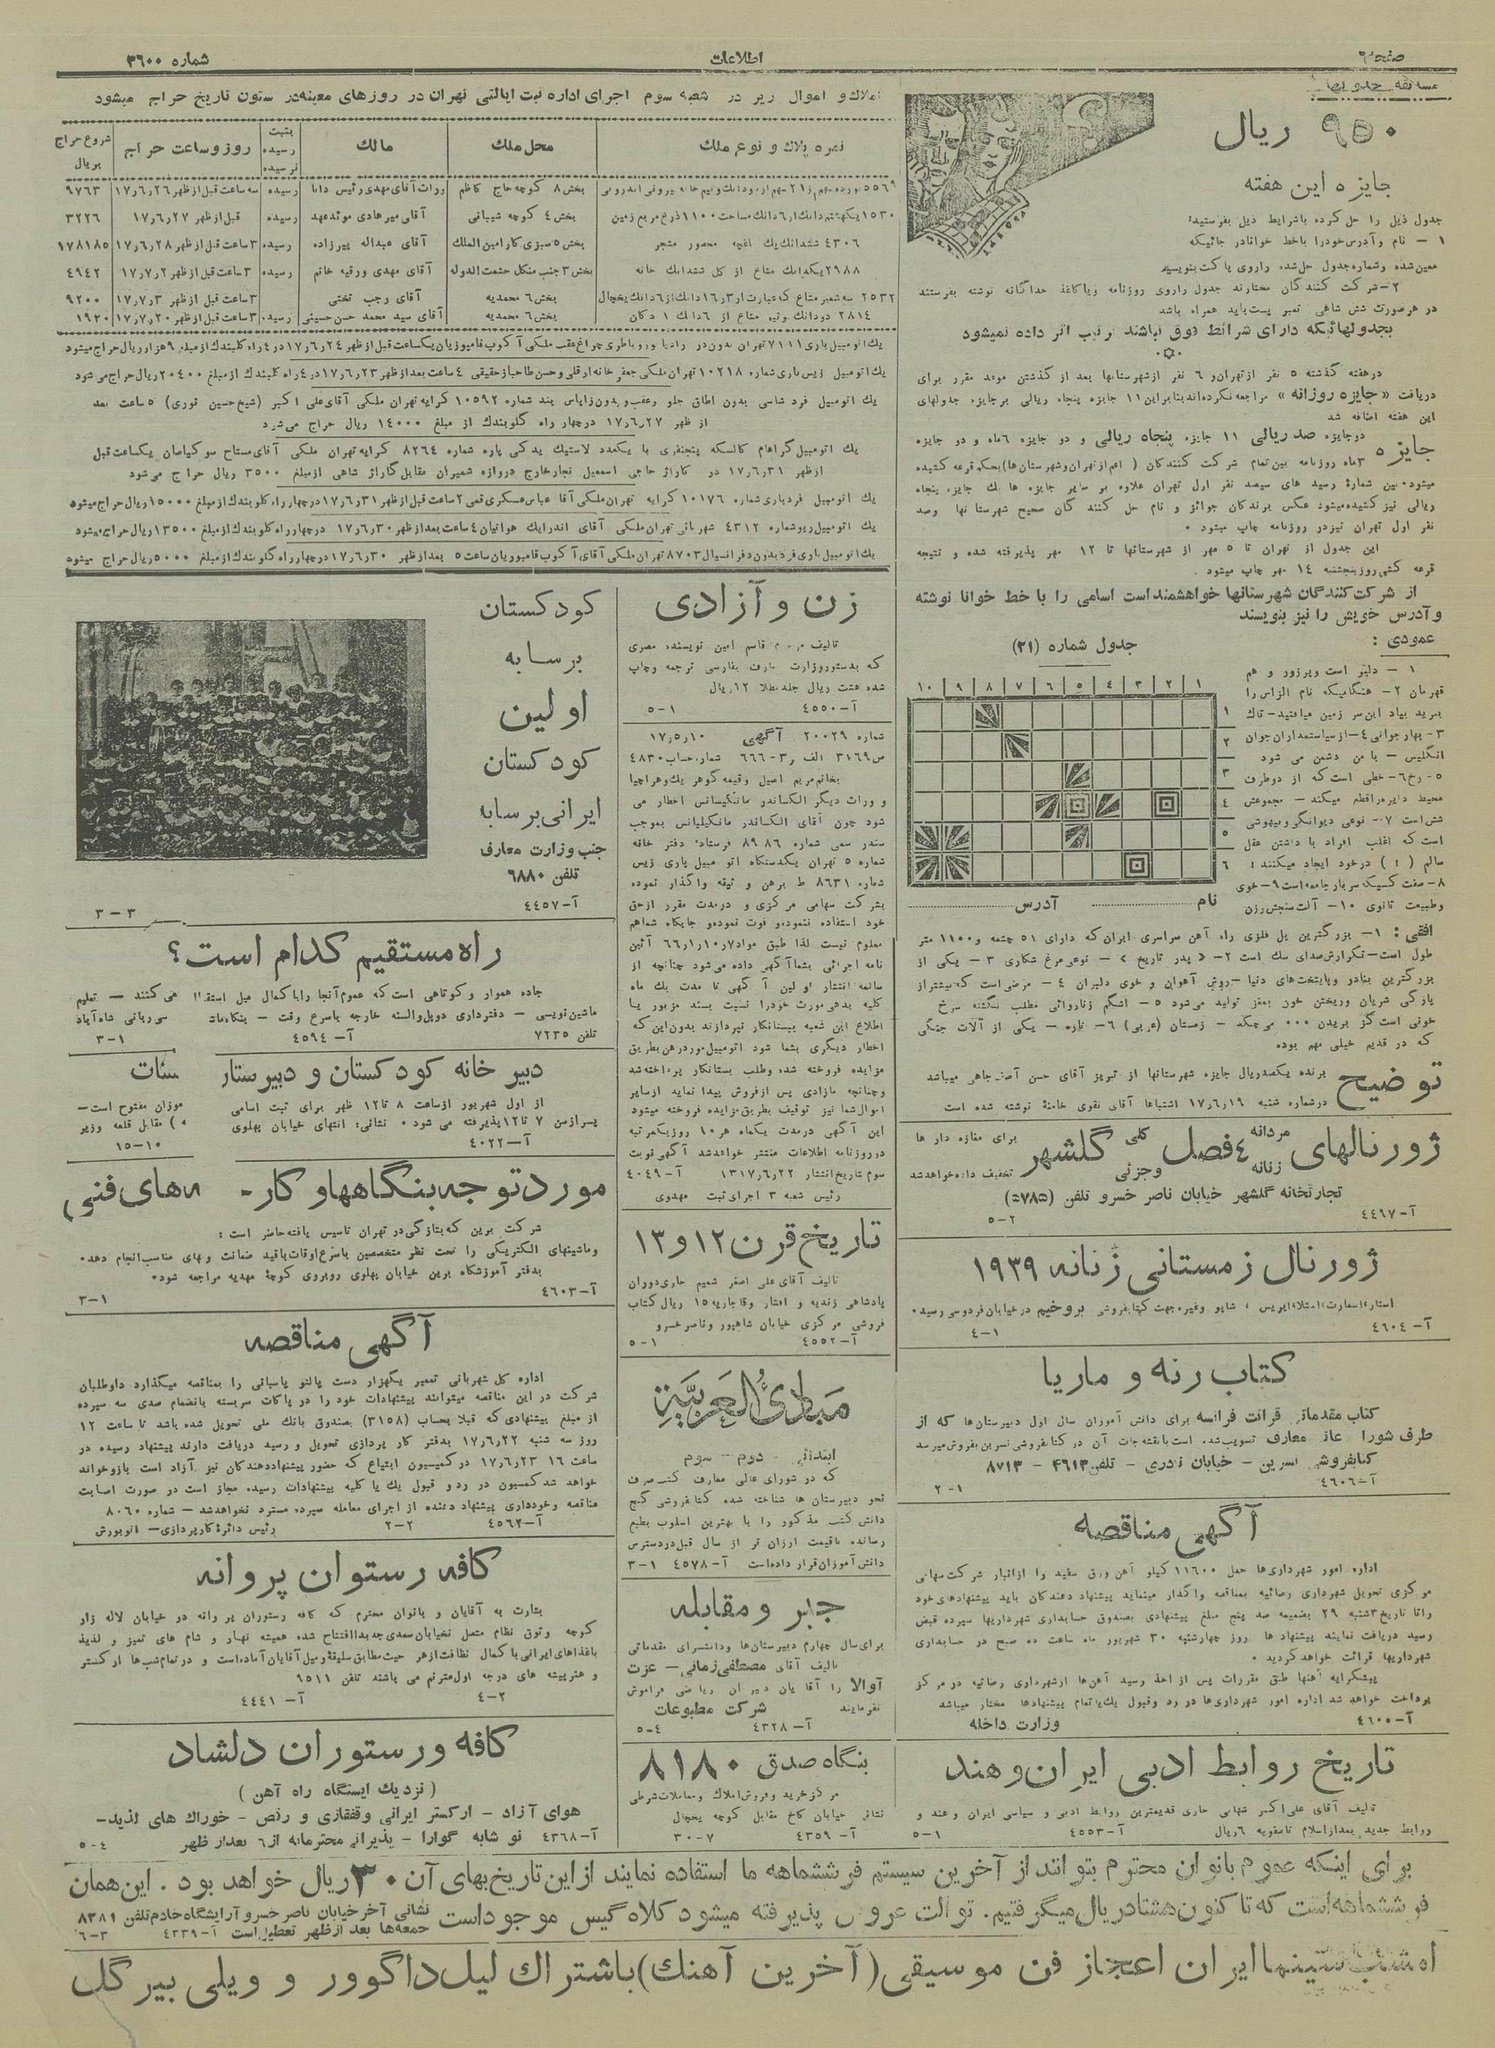 صفحه ۶
اطلاعات
شماره ۳۶۰۰
مسابقه جدولها
۹۵۰ ریال
جایزه این هفته
جدول ذیل را حل کرده باشرایط ذیل بفرستید:
۱ — نام و آدرس خودرا باخط خوانادر جائیکه
معین شده وشماره جدول حل شده راروی پاکت بنویسید
۲- شرکت کنندگان مختارند جدول راروی روزنامه ویاکاغذ جداگانه نوشته بفرستند
در هرصورت شش شاهی تمبر پست باید همراه باشد
بجدولهائیکه دارای شرائط فوق نباشند ترتیب اثر داده نمیشود
درهفته گذشته ۵ نفر ازتهران و ۶ نفر ازشهرستانها بعد از گذشتن موعد مقرر برای
دریافت «جایزه روزانه» مراجعه نکرده اند بنابراین ۱۱ جایزه پنجاه ریالی برجایزه جدولهای
این هفته اضافه شد
جایزه
دوجایزه صد ریالی ۱۱ جایزه پنجاه ریالی و دو جایزه ۶ماه و دو جایزه
۳ماه روزنامه بین تمام شرکت کنندگان (اعم از تهران وشهرستان ها) بحکم قرعه کشیده
میشود. بین شماره رسید های سیصد نفر اول تهران علاوه بر سایر جایزه ها یک جایزه پنجاه
ریالی نیز کشیده میشود عکس برندگان جوائز و نام حل کنند گان صحیح شهرستا نها وصد
نفر اول تهران نیز در روزنامه چاپ میشود.
این جدول از تهران تا ۵ مهر از شهرستانها تا ۱۲ مهر پذیرفته شده و نتیجه
قرعه کشی روز پنجشنبه ۱۴ مهر چاپ میشود.
از شرکت کنندگان شهرستانها خواهشمند است اسامی را با خط خوانا نوشته
و آدرس خویش را نیز بنویسند
جدول شماره (۲۱)
۱ ۲ ۳ ۴ ۵ ۶ ۷ ۸ ۹ ۱۰
۱
۲
۳
۴
۵
۶
نام
آدرس
عمودی :
۱ — دلیر است و پرزور و هم
قهرمان ۲— هنگامیکه نام الزاس را
ببرید بیاد این سر زمین میافتید— تاک
۳— بهار جوانی ۴— از سیاستمداران جوان
انگلیس — با من دشمن می شود
۵— رخ ۶— خطی است که از دوطرف
محیط دایره را قطع میکند — مجموعش
شش است ۷— نوعی دیوانگی و بیهوشی
است که اغلب افراد با داشتن عقل
سالم (!) درخود ایجاد میکنند :
۸— صفت کسیکه سربار جامعه است ۹— خوی
وطبیعت ثانوی ۱۰— آلت سنجش وزن
افقی : ۱— بزرگترین پل فلزی راه آهن سراسری ایران که دارای ۵۱ چشمه و ۱۱۰۰ متر
طول است— تکرارش صدای سگ است ۲— « پدر تاریخ » — نوعی مرغ شکاری ۳— یکی از
بزرگترین بنادر و پایتخت های دنیا — روش آهوان و خوی دلبران ۴— مرضی است که بیشتر از
پارگی شریان وریختن خون بمغز تولید می شود ۵— اشکم زنا روائی مطلب نگشته سرخ
خونی است کز بریدن ۰۰۰ می چکد — زمستان (عربی) ۶— تازه — یکی از آلات جنگی
که در قدیم خیلی مهم بود.
توضیح
برنده یکصدریال جایزه شهرستانها از تبریز آقای حسن آصف جاهی میباشد
در شماره شنبه ۱۷٫۶٫۱۹ اشتباها آقای نقوی خامنه نوشته شده است
ژورنالهای مردانه زنانه ۴ فصل کلی وجزئی گلشهر
برای مغازه دار ها
تخفیف داده خواهد شد
تجارتخانه گلشهر خیابان ناصر خسرو تلفن (۵۷۸۵)
آ—۴۴۶۷ ۲-۵
ژورنال زمستانی زنانه ۱۹۳۹
جهت کتابفروشی بروخیم در خیابان فردوسی رسید.
آ—۴۶۰۴ ۱-۴
کتاب رنه و ماریا
کتاب مقدماتی قرائت فرانسه برای دانش آموزان سال اول دبیرستان ها که از
طرف شورا عالی معارف تصویب شده است بانقشه جات آن در کتابفروشی نسرین بفروش میرسد
کتابفروشی نسرین — خیابان نادری — تلفن ۴۶۱۳ — ۸۷۱۳
آ—۴۶۰۶ ۱-۲
آگهی مناقصه
اداره امور شهرداری ها حمل ۱۱۶۰۰ کیلو آهن ورق سفید را از انبار شرکت سهامی
مرکزی تحویل شهرداری رضائیه بمناقصه واگذار مینماید پیشنهاد دهندگان باید پیشنهادهای خود
را تا تاریخ ۳شنبه ۲۹ بضمیمه صد پنج مبلغ پیشنهادی بصندوق حسابداری شهرداریها سپرده قبض
رسید دریافت نمایند پیشنهاد ها روز چهارشنبه ۳۰ شهریور ماه ساعت ده صبح در حسابداری
شهرداریها قرائت خواهد گردید .
پیشکرایه آهنها طبق مقررات پس از اخذ رسید آهن ها از شهرداری رضائیه در مرکز
پرداخت خواهد شد اداره امور شهرداری ها در رد و قبول یک یا تمام پیشنهادها مختار میباشد
آ—۴۶۰۰ وزارت داخله
تاریخ روابط ادبی ایران و هند
تالیف آقای علی اکبر شهابی حاوی قدیمترین روابط ادبی و سیاسی ایران وهند و
وروابط جدید بعد از اسلام تا صفویه ۶ ریال آ—۴۵۵۳ ۱-۵
املاک و اموال زیر در شعبه سوم اجرای اداره ثبت ایالتی تهران در روزهای معینه در ستون تاریخ حراج میشود
نمره پلاک و نوع ملک | محل ملک | مالک | بثبت رسیده نرسیده | روز و ساعت حراج | شروع حراج بریال
بخش ۸ کوچه حاج کاظم | وراث آقای مهدی رئیس دانا | رسیده | سه ساعت قبل از ظهر ۱۷٫۶٫۲۶ | ۹۷۶۳
بخش ۴ کوچه شیبانی | آقای میرهادی موئدعهد | رسیده | قبل از ظهر ۱۷٫۶٫۲۷ | ۳۲۲۶
۴۳۰۶ ششدانگ یک باغچه محصور مشجر | آقای عبداله پیرزاده | رسیده | ۳ساعت قبل از ظهر ۱۷٫۶٫۲۸ | ۱۷۸۱۸۵
۲۹۸۸ یکدانگ مشاع از کل ششدانگ خانه | بخش ۳ جنب منگل حشمت الدوله | آقای مهدی ورقیه خانم | رسیده | ۳ساعت قبل از ظهر ۱۷٫۷٫۲ | ۴۹۴۲
بخش ۶ محمدیه | آقای رجب تختی | ۳ساعت قبل از ظهر ۱۷٫۷٫۳ | ۹۲۰۰
بخش ۶ محمدیه | آقای سید محمد حسن حسینی | رسیده | ۳ساعت قبل از ظهر ۱۷٫۷٫۲۰ | ۱۹۲۰
یک اتومبیل زیس باری شماره ۱۰۲۱۸ تهران ملکی جعفر خانه ارقلی وحسن طاحباز حقیقی ۴ ساعت بعد از ظهر ۱۷٫۶٫۲۳ در ۴راه گلبندک از مبلغ ۲۰۴۰۰ ریال حراج می شود
یک اتومبیل فرد شاسی بدون اطاق جلو وعقب و بدون زاپاس بند شماره ۱۰۵۹۲ کرایه تهران ملکی آقای علی اکبر (شیخ حسین نوری) ۵ ساعت بعد
از ظهر ۱۷٫۶٫۲۷ در چهار راه گلوبندک از مبلغ ۱۴۰۰۰ ریال حراج می شود
یک اتومبیل گراهام کالسکه پنجنفری با یکعدد لاستیک یدکی پاره شماره ۸۲۶۴ کرایه تهران ملکی آقای مستاح سوکیاسیان یکساعت قبل
از ظهر ۱۷٫۶٫۳۱ در گاراژ حاجی اسمعیل نجار خارج دروازه شمیران مقابل گاراژ شاهی از مبلغ ۳۵۰۰ ریال حراج می شود
یک اتومبیل فرد باری شماره ۱۰۱۷۶ کرایه تهران ملکی آقا عباس عسکری قمی ۲ ساعت قبل از ظهر ۱۷٫۶٫۳۱ در چهار راه گلوبندک از مبلغ ۱۵۰۰۰ ریال حراج میشود
یک اتومبیل ریو شماره ۴۳۱۲ شهربانی تهران ملکی آقای اندرایک هوانیان ۴ ساعت بعد از ظهر ۱۷٫۶٫۳۰ در چهار راه گلوبندک از مبلغ ۱۳۵۰۰ ریال حراج میشود
یک اتومبیل باری فرد بدون دفرانسیال ۸۷۰۳ تهران ملکی آقای آکوپ قامبوریان ساعت ۵ بعد از ظهر ۱۷٫۶٫۳۰ در چهار راه گلوبندک از مبلغ ۵۰۰۰ ریال حراج میشود
زن و آزادی
تالیف مرحوم قاسم امین نویسنده مصری
که بدستور وزارت معارف بفارسی ترجمه وچاپ
شده هشت ریال جلد طلا ۱۲ ریال
آ—۴۵۵۰ ۱-۵
شماره ۲۰۰۲۹ آگهی ۱۷٫۵٫۱۰
ص ۳۱۶۹ الف و ۳-۶۶۶ شماره حساب ۴۸۳۰
بخانم مریم اصیل وقیمه گوهر یک و هراچیا
و وراث دیگر الکساندر مانکیسانس اخطار می
شود چون آقای الکساندر مانگیلیانس بموجب
سند رسمی شماره ۸۹۸۶ فرستاده دفتر خانه
شماره ۵ تهران یکدستگاه اتو مبیل باری زیس
شماره ۸۶۳۱ ط برهن و ثیقه واگذار نموده
بشرکت سهامی مرکزی و در مدت مقرر از حق
خود استفاده ننموده و فوت نموده و جایگاه شماهم
معلوم نیست لذا طبق مواد ۷ و ۱۰ و ۶۶ آئین
نامه اجرائی بشما آگهی داده می شود چنانچه از
انتشار او لین آ گهی تا مدت یک ماه
کلیه بدهی مورث خود را نسبت بسند مزبور یا
اطلاع این شعبه ببستانکار نپردازند بدون این که
اخطار دیگری بشما شود اتومبیل مورد رهن بطریق
مزایده فروخته شده وطلب بستانکار پرداخته شد
وچنانچه مازادی پس از فروش پیدا نماید از سایر
اموال شما نیز توقیف بطریق مزایده فروخته میشود
این آگهی در مدت یکماه هر ۱۰ روز یکمرتبه
در روزنامه اطلاعات منتشر خواهد شد آگهی نوبت
سوم تاریخ انتشار ۱۳۱۷٫۶٫۲۲ آ—۴۰۴۹
رئیس شعبه ۳ اجرای ثبت مهدوی
تاریخ قرن ۱۲ و ۱۳
تالیف آقای علی اصغر شمیم حاوی دوران
پادشاهی زندیه و افشار وقاجاریه ۱۵ ریال کتاب
فروشی مرکزی خیابان شاهپور و ناصر خسرو
آ—۴۵۵۲ ۱-۵
مَبادِئُ العَرَبیّة
ابتدائی - دوم — سوم
که در شورای عالی معارف کتب صرف
نحو دبیرستان ها شناخته شده کتابفروشی گنج
دانش کتب مذکور را با بهترین اسلوب بطبع
رسانده باقیمت ارزان تر از سال قبل در دسترس
دانش آموزان قرار داده است آ—۴۵۷۸ ۱-۳
جبر و مقابله
برای سال چهارم دبیرستان ها و دانشسرای مقدماتی
تالیف آقای مصطفی زمانی — عزت
آوالا را آقا یان دبیر ان ریاضی فراموش
نفرمایند شرکت مطبوعات
آ—۴۳۲۸ ۴-۵
بنگاه صدق ۸۱۸۰
مرکز خرید و فروش املاک و معاملات شرطی
نشانی خیابان کاخ مقابل کوچه یخچال
آ—۴۳۵۹ ۷-۳۰
کودکستان
برسابه
اولین
کودکستان
ایرانی برسابه
جنب وزارت معارف
تلفن ۶۸۸۰
آ—۴۴۵۷
۳-۳
راه مستقیم کدام است؟
جاده هموار و کوتاهی است که عموم آنجا را با کمال میل استقبا می کنند — تعلیم
ماشین نویسی — دفترداری دوبل والسنه خارجه باسرع وقت — بنگاه
تلفن ۷۲۳۵ آ—۴۵۹۴ ۱-۳
دبیر خانه کودکستان و دبیرستان
از اول شهریور از ساعت ۸ تا ۱۲ ظهر برای ثبت اسامی
پسر از سن ۷ تا ۱۲ پذیرفته می شود . نشانی: انتهای خیابان پهلوی مقابل قلعه وزیر
آ—۴۰۲۲ ۱۰-۱۵
مورد توجه بنگاهها و کار
شرکت برین که بتازگی در تهران تاسیس یافته حاضر است :
وماشینهای الکتریکی را تحت نظر متخصصین باسرع اوقات باقید ضمانت و بهای مناسب انجام دهد.
بدفتر آموزشگاه برین خیابان پهلوی روبروی کوچه مهدیه مراجعه شود.
آ—۴۶۰۳ ۱-۳
آگهی مناقصه
اداره کل شهربانی تعمیر یکهزار دست پالتو پاسبانی را بمناقصه میگذارد داوطلبان
شرکت در این مناقصه میتوانند پیشنهادات خود را در پاکات سربسته بانضمام صدی سه سپرده
از مبلغ پیشنهادی که قبلا بحساب (۳۱۵۸) بصندوق بانک ملی تحویل شده باشد تا ساعت ۱۲
روز سه شنبه ۱۷٫۶٫۲۲ بدفتر کار پردازی تحویل و رسید دریافت دارند پیشنهاد رسیده در
ساعت ۱۶ ۱۷٫۶٫۲۳ در کمیسیون ابتیاع که حضور پیشنهاددهندگان نیز آزاد است بازوخواند
خواهد شد کمسیون در رد و قبول یک یا کلیه پیشنهادات رسیده. مجاز است در صورت اصابت
مناقصه وخودداری پیشنهاد دهنده از اجرای معامله سپرده مسترد نخواهد شد — شماره ۸۰۶۰
آ—۴۵۶۲ ۲-۲ رئیس دائره کار پردازی — انوبورش
کافه رستوان پروانه
بشارت به آقایان و بانوان محترم که کافه رستوران پروانه در خیابان لاله زار
کوچه وثوق نظام متصل بخیابان سعدی جدیدا افتتاح شده همیشه نهار و شام های تمیز و لذیذ
باغذاهای ایرانی با کمال نظافت از هر حیث مطابق سلیقه و میل آقایان آماده است و در تمام شب ها ارکستر
و هنرپیشه های درجه اول مترنم می باشند تلفن ۹۵۱۱
۲-۴ آ—۴۴۴۱
کافه و رستوران دلشاد
( نزدیک ایستگاه راه آهن )
هوای آزاد — ارکستر ایرانی وقفقازی و رقص — خوراک های لذیذ—
آ—۴۳۶۸ نو شابه گوارا — پذیرائی محترمانه از ۶ بعد از ظهر ۴-۵
برای اینکه عموم بانوان محترم بتوانند از آخرین سیستم فر ششماهه ما استفاده نمایند از این تاریخ بهای آن ۳۰ ریال خواهد بود . این همان
فر ششماهه است که تا کنون هشتاد ریال میگرفتیم. توالت عروس پذیرفته میشود کلاه گیس موجود است نشانی آخر خیابان ناصر خسرو آرایشگاه خادم تلفن ۸۳۸۹
جمعه ها بعد از ظهر تعطیل است آ—۴۳۳۹ ۳-۶
امشب سینما ایران اعجاز فن موسیقی (آخرین آهنگ) باشتراک لیل داگوور و ویلی بیرگل